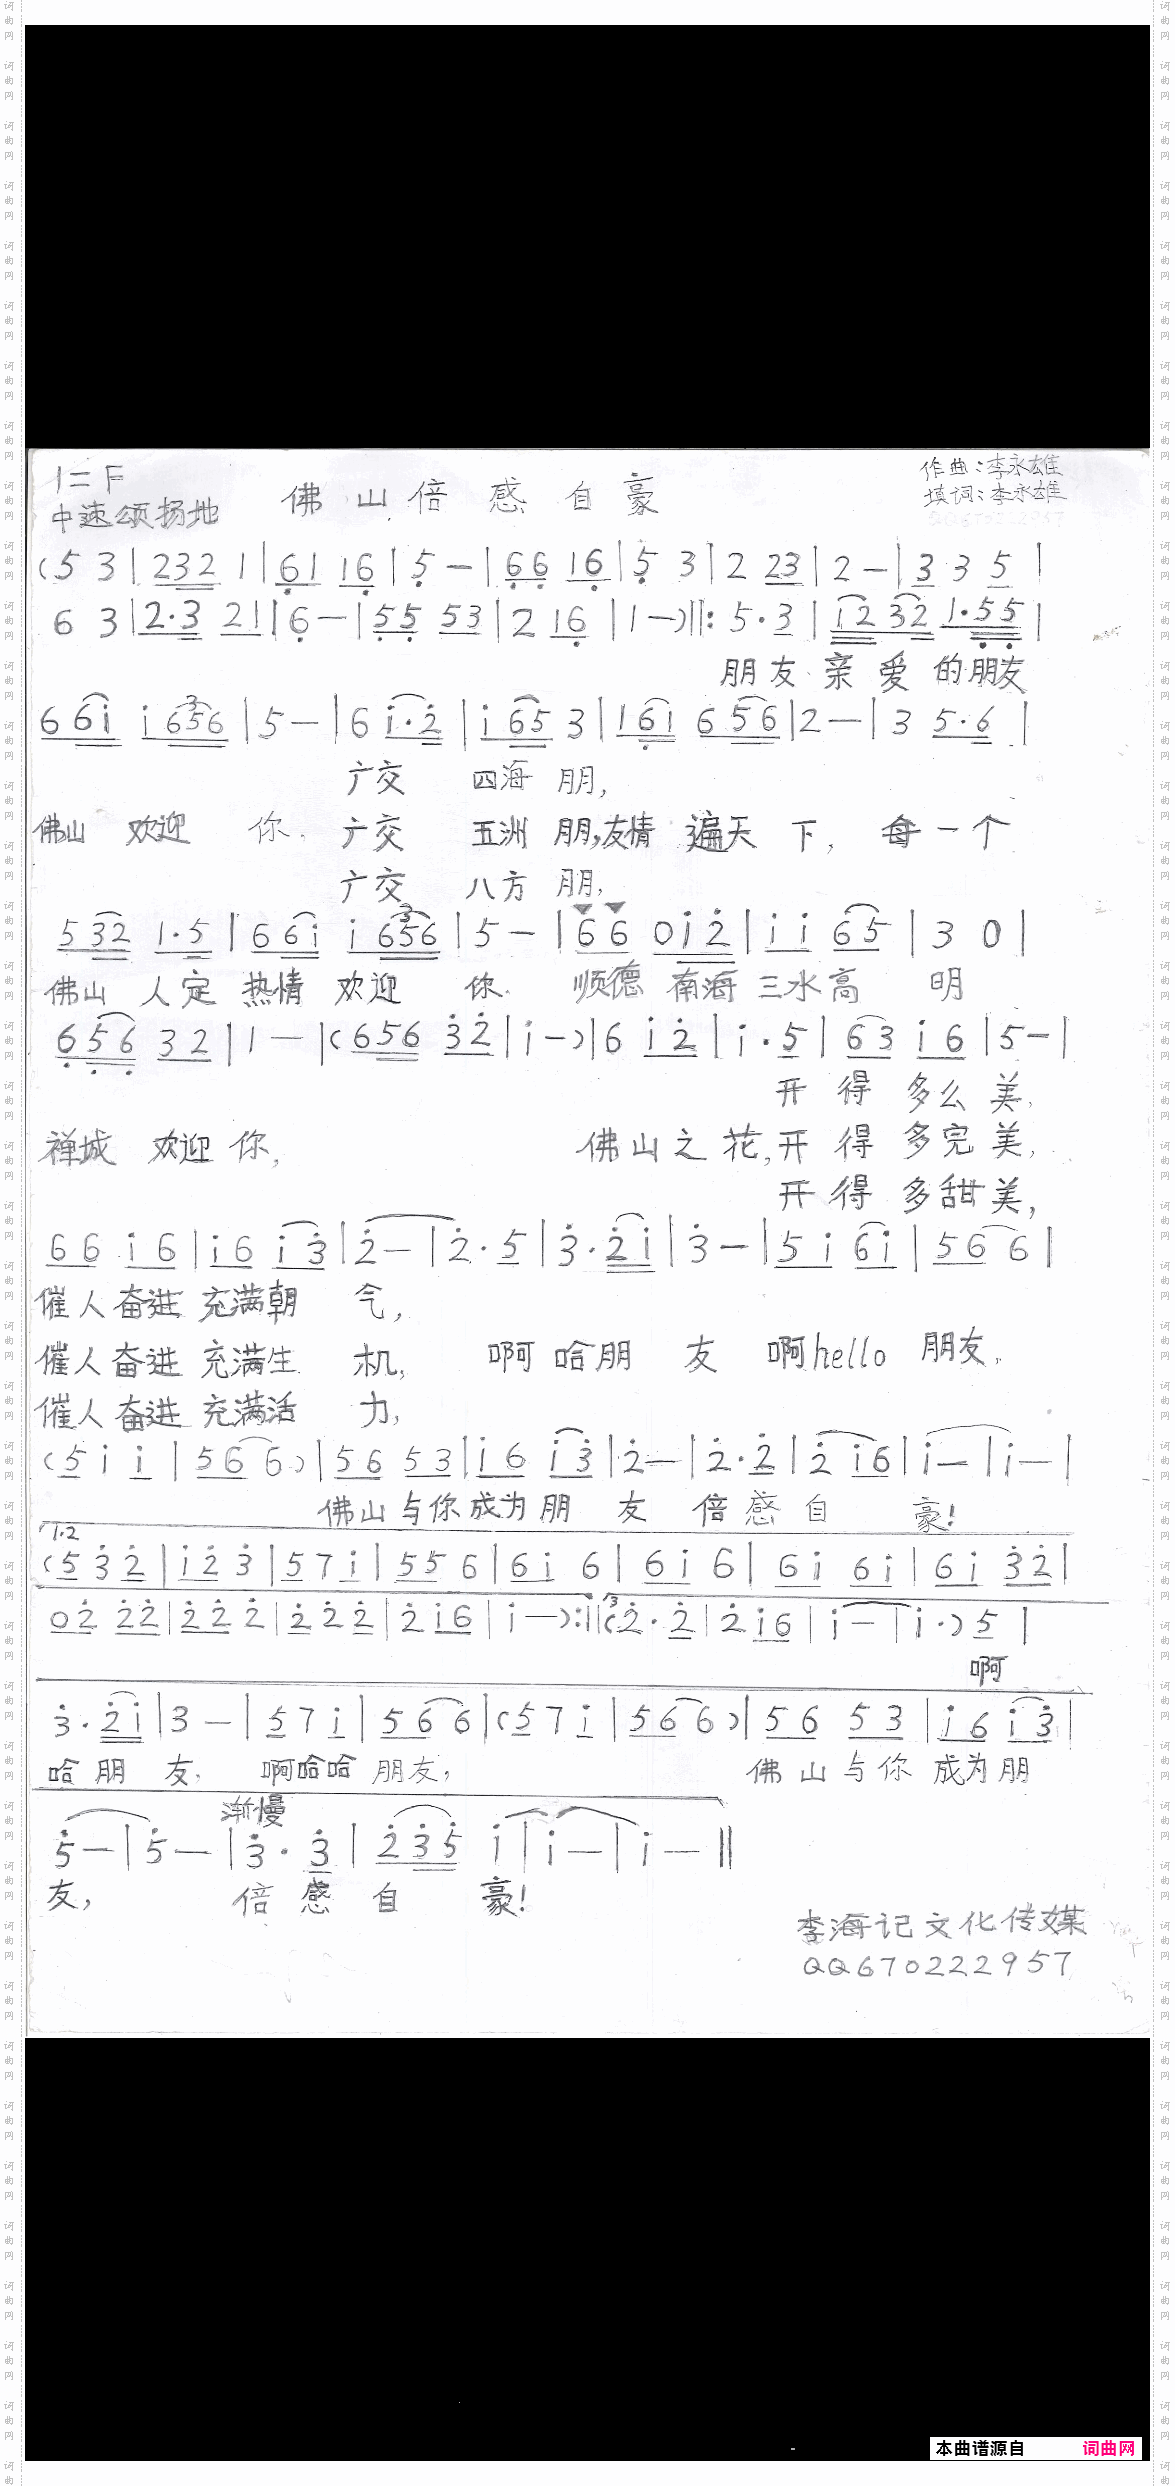 1=F
中速颂扬地
佛山倍感自豪
作曲:李永雄
填词:李永雄
QQ670222957
(5 3|232 1|61 16|5 -|66 16|5 3|2 23|2 -|3 3 5|
6 3|2·3 21|6 -|55 53|2 16|1 -)‖: 5·3|i2 32 1·55|
朋友 亲 爱 的朋友
6 6i i 656|5 -|6 i·2|i 65 3|1 61 6 56|2 -|3 5·6|
广交 四海 朋,
佛山 欢迎 你. 广交 五洲 朋,友情 遍天 下, 每一个
广交 八方 朋,
5 32 1·5|6 6i i 656|5 -|66 0i2|ii 65|3 0|
佛山 人定 热情 欢迎 你. 顺德 南海 三水高 明
656 32|1 -|(656 32|i -)|6 i2|i·5|63 i6|5 -|
开 得 多么 美,
禅城 欢迎 你, 佛山之 花,开 得 多完 美,
开 得 多甜 美,
66 i6|i6 i3|2 -|2·5|3·2i|3 -|5i 6i|56 6|
催人奋进 充满朝 气,
催人奋进 充满生 机, 啊 哈朋 友 啊hello 朋友,
催人奋进 充满活 力,
(5 i i|56 6)|56 53|i6 i3|2 -|2·2|2 i6|i -|i -|
佛山与你成为朋 友 倍感自 豪!
1.2
(5 3 2|i 2 3|5 7 i|55 6|6i 6|6i 6|6i 6i|6i 32|
02 22|22 2|2 2 2|2 i6|i -):‖(2·2|2 i6|i -|i·) 5|
3
啊
3·2i|3 -|5 7 i|56 6|(5 7 i|56 6)|56 53|i6 i3|
哈朋 友, 啊哈哈 朋友, 佛山与你 成为朋
渐慢
5 -|5 -|3·3|2 35 i|i -|i -‖
友, 倍感自 豪!
李海记文化传媒
QQ670222957
本曲谱源自 词曲网